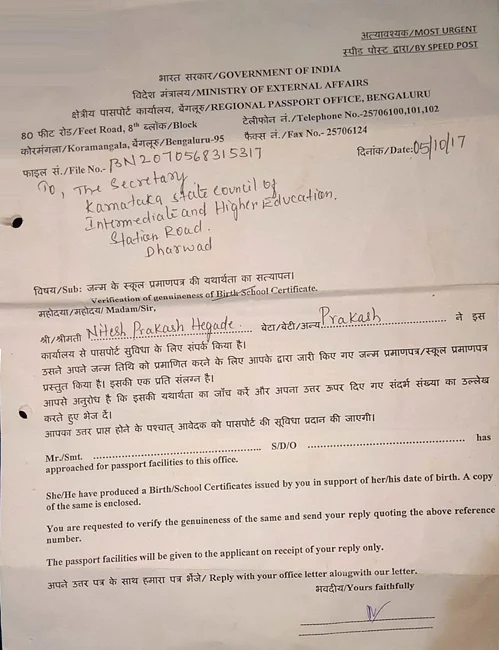 अत्यावश्यक/MOST URGENT
स्पीड पोस्ट द्वारा/BY SPEED POST
भारत सरकार/GOVERNMENT OF INDIA
विदेश मंत्रालय/MINISTRY OF EXTERNAL AFFAIRS
क्षेत्रीय पासपोर्ट कार्यालय, बैंगलूरु/REGIONAL PASSPORT OFFICE, BENGALURU
80 फीट रोड/Feet Road, 8th ब्लॉक/Block
टेलीफोन नं./Telephone No.-25706100,101,102
कोरमंगला/Koramangala, बैंगलूरु/Bengaluru-95
फैक्स नं./Fax No.- 25706124
फाइल सं./File No.- BN2070568315317
दिनांक/Date: 05/10/17
To, The Secretary
Karnataka state council of
Intermediate and Higher Education.
Station Road.
Dharwad
विषय/Sub: जन्म के स्कूल प्रमाणपत्र की यथार्थता का सत्यापन।
Verification of genuineness of Birth School Certificate.
महोदया/महोदय/ Madam/Sir,
श्री/श्रीमती Nitesh Prakash Hegade. बेटा/बेटी/अन्य Prakash ने इस
कार्यालय से पासपोर्ट सुविधा के लिए संपर्क किया है।
उसने अपने जन्म तिथि को प्रमाणित करने के लिए आपके द्वारा जारी किए गए जन्म प्रमाणपत्र/स्कूल प्रमाणपत्र
प्रस्तुत किया है। इसकी एक प्रति संलग्न है।
आपसे अनुरोध है कि इसकी यथार्थता का जाँच करें और अपना उत्तर ऊपर दिए गए संदर्भ संख्या का उल्लेख
करते हुए भेज दें।
आपका उत्तर प्राप्त होने के पश्चात् आवेदक को पासपोर्ट की सूविधा प्रदान की जाएगी।
Mr./Smt. .................................................... S/D/O .................................................... has
approached for passport facilities to this office.
She/He have produced a Birth/School Certificates issued by you in support of her/his date of birth. A copy
of the same is enclosed.
You are requested to verify the genuineness of the same and send your reply quoting the above reference
number.
The passport facilities will be given to the applicant on receipt of your reply only.
अपने उत्तर पत्र के साथ हमारा पत्र भेंजे/ Reply with your office letter alougwith our letter.
भवदीय/Yours faithfully